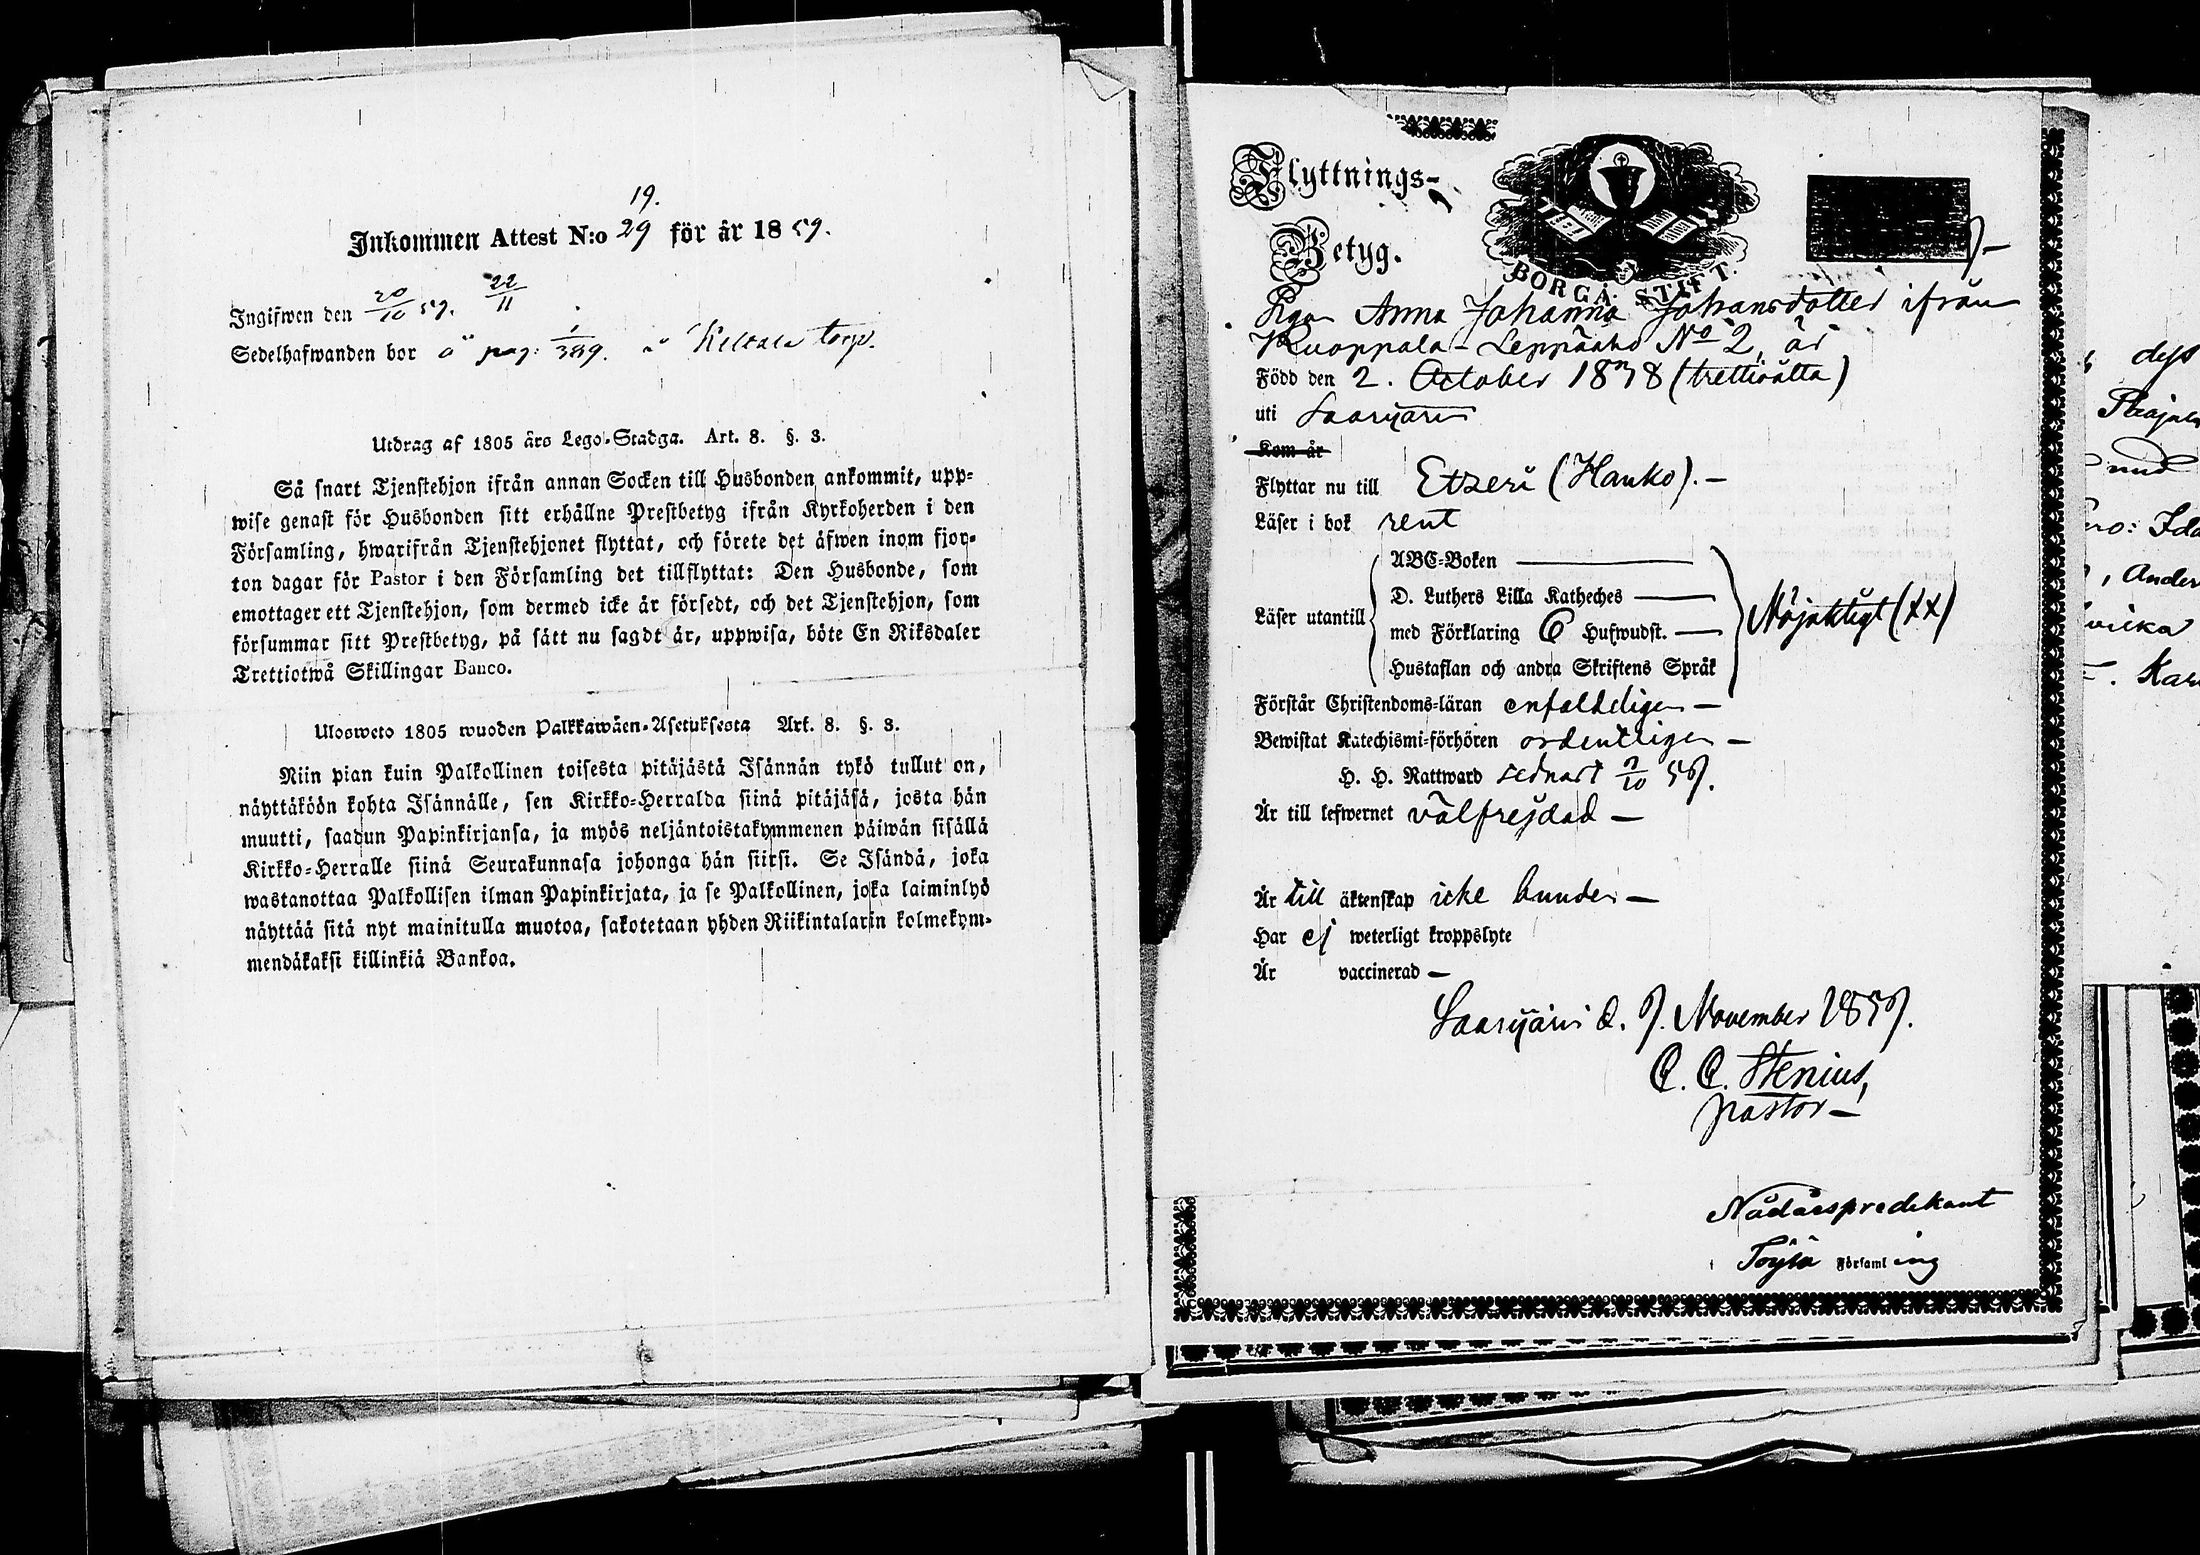 19.
Inkommen Attest N:o 29 för år 1859.
Ingifwen den 20/10 59. 22/11
Sedelhafwanden bor å pag: 1/389. å Keltala torp.
Utdrag af 1805 års Lego-Stadga. Art. 8. §. 3.
Så snart Tjenstehjon ifrån annan Socken till Husbonden ankommit, upp-
wise genast för Husbonden sitt erhållne Prestbetyg ifrån Kyrkoherden i den
Församling, hwarifrån Tjenstehjonet flyttat, och förete det äfwen inom fjor-
ton dagar för Pastor i den Församling det tillflyttat: Den Husbonde, som
emottager ett Tjenstehjon, som dermed icke är försedt, och det Tjenstehjon, som
försummar sitt Prestbetyg, på sätt nu sagdt är, uppwisa, böte En Riksdaler
Trettiotwå Skillingar Banco.
Ulosweto 1805 wuoden Palkkawäen-Asetuksesta Art. 8. §. 3.
Niin pian kuin Palkollinen toisesta pitäjästä Isännän tykö tullut on,
näyttäköön kohta Isännälle, sen Kirkko-Herralda siinä pitäjäsä, josta hän
muutti, saadun Papinkirjansa, ja myös neljäntoistakymmenen päiwän sisällä
Kirkko-Herralle siinä Seurakunnasa johonga hän siirsi. Se Isändä, joka
wastanottaa Palkollisen ilman Papinkirjata, ja se Palkollinen, joka laiminlyö
näyttää sitä nyt mainitulla muotoa, sakotetaan yhden Riikintalarin kolmekym-
mendäkaksi killinkiä Bankoa.
Flyttnings-
Betyg.
BORGÅ STIFT.
Pigan Anna Johanna Johansdotter ifrån
Kuoppala-Leppäaho No 2, är
Född den 2. October 1838 (trettiåtta)
uti Saarijärvi
Kom år
Flyttar nu till Etzeri (Hanko). -
Läser i bok rent
ABC-Boken
D. Luthers Lilla Katheches
Läser utantill med Förklaring 6 Hufwudst. Nöjaktigt (xx)
Hustaflan och andra Skriftens Språk
Förstår Christendoms-läran enfaldeligen -
Bewistat Katechismi-förhören ordentligen -
H. H. Nattward sednast 9/10 59.
Är till lefwernet välfrejdad -
Är till äktenskap icke bunden -
Har ej weterligt kroppslyte
Är vaccinerad -
Saarijärvi d. 9. November 1859.
C. C. Stenius,
pastor -
Nådårspredikant
i Töysä Församling